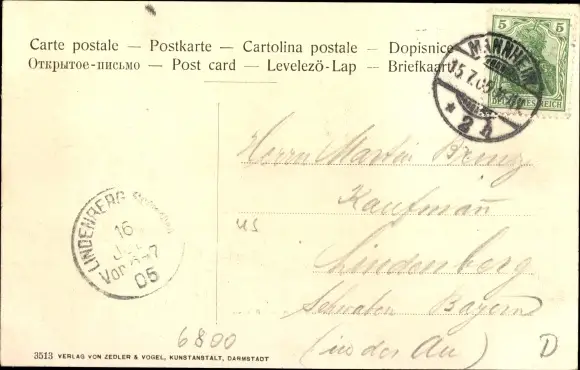 Carte postale — Postkarte — Cartolina postale — Dopisnice
Открытое-письмо — Post card — Levelező-Lap — Briefkaart
5 5
DEUTSCHES REICH
MANNHEIM
15.7.05
* 2 h
Herrn Martin
Kaufmann
Lindenberg
Schwaben Bayern
(in der Au)
us
LINDENBERG
16
JUL
Vor 6-7
05
6800
D
3513 VERLAG VON ZEDLER & VOGEL, KUNSTANSTALT, DARMSTADT